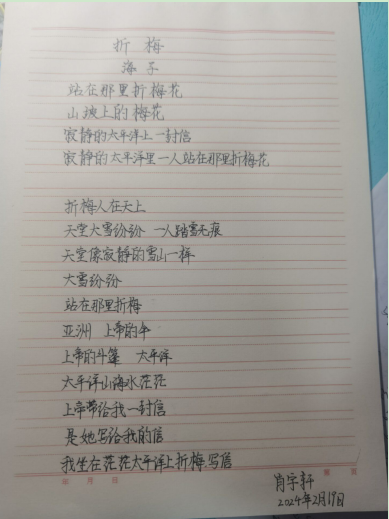 折梅
海子
站在那里折梅花
山坡上的梅花
寂静的太平洋上一封信
寂静的太平洋里一人站在那里折梅花
折梅人在天上
天堂大雪纷纷 一人踏雪无痕
天堂像寂静的雪山一样
大雪纷纷
站在那里折梅
亚洲 上帝的伞
上帝的斗篷 太平洋
太平洋山海水茫茫
上帝带给我一封信
是她写给我的信
我坐在茫茫太平洋上折梅,写信
肖宇轩
2024年2月19日